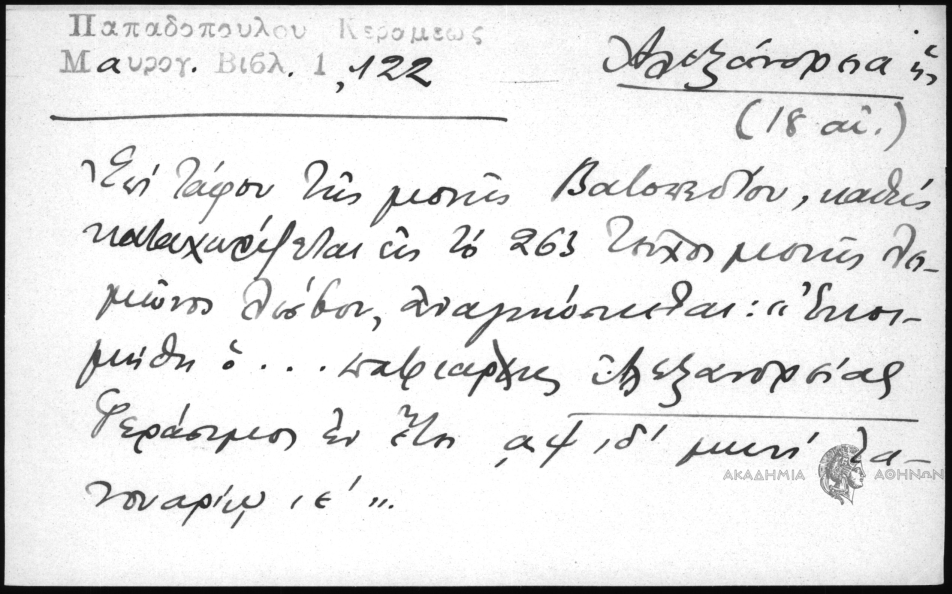 Παπαδοπουλου Κεραμεως
Μαυρογ. Βιβλ. 1, 122
Ἀλεξάνδρεια ἡ
(18 αἰ.)
Ἐπί τάφου τῆς μονῆς Βατοπεδίου, καθώς
καταχωρίζεται εἰς τό 263 τεῦχος μονῆς Λει-
μῶνος Λέσβου, ἀναγινώσκεται: "Ἐκοι-
μήθη ὁ ... πατριάρχης Ἀλεξανδρείας
Γεράσιμος ἐν ἔτει ͵αψιδ' μηνί Ἰα-
νουαρίῳ ιε'".
ΑΚΑΔΗΜΙΑ ΑΘΗΝΩΝ